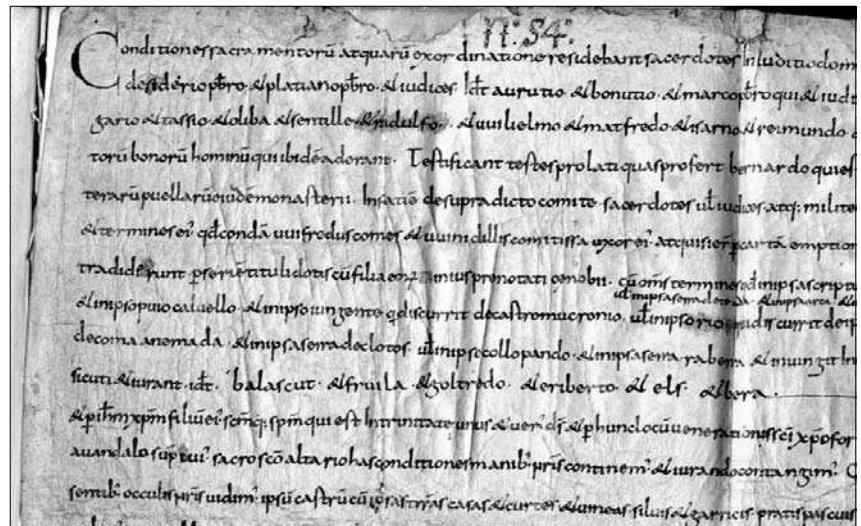 N: 54:
Conditiones sacramentorū atquarū exordinatione residebant sacerdotes In Iuditio dom
desiderio pbro & platiano pbro & iudices Idt aurutio & bonutio & marco pbro qui & iudi
gario & tassio & oliba & sentille & indulfo & uuilielmo & matfredo & isarno & reimundo
torū bonorū hominū qui ibidē aderant. Testificant testes prolati quas profert bernardo qui es
terarū puellarū eiudē monasterii. In fatiē de supradicto comite sacerdotes ul iudices atq: milite
& termines ei' qd condā uuifredus comes & uuinidillis comitissa uxor ei' atquisier p cartā emption
tradiderunt p seriē tituli dotis cū filia cenobii. cū oms termines qd in ipsa scriptu
ul in ipsa serra de & in ipsa
& in ipso puio caluello & in ipso iungente q discurrit de castro mucronio ul in ipso rio discurrit de ip
de coma anemada & in ipsa serra declotos ul in ipse collo pando & in ipsa serra rabera & iniungit In
sicuti & iurant idt balascut & fruila & goltredo & eriberto & els & bera
& p ihm xpm filiū ei' scmq: spm qui est In trinitate unus & uer' ds & p hunc locū uenerationis sci xpofor
auandalo sup cui' sacroscō altario has conditiones manib' nris continem' & iurando contangim'
sentib' occulis nris uidim' ipsū castrū cū ipsas trras casas & curtes & uineas siluis & garricis pratis pascuis